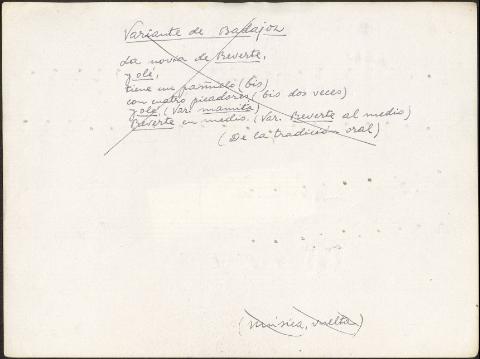 Variante de Badajoz
La novia de Reverte,
y olé,
tiene un pañuelo (bis)
con cuatro picadores (bis dos veces)
y olé, (Var. mamita)
Reverte en medio. (Var. Reverte al medio)
(De la tradición oral)
(Música, vuelta)